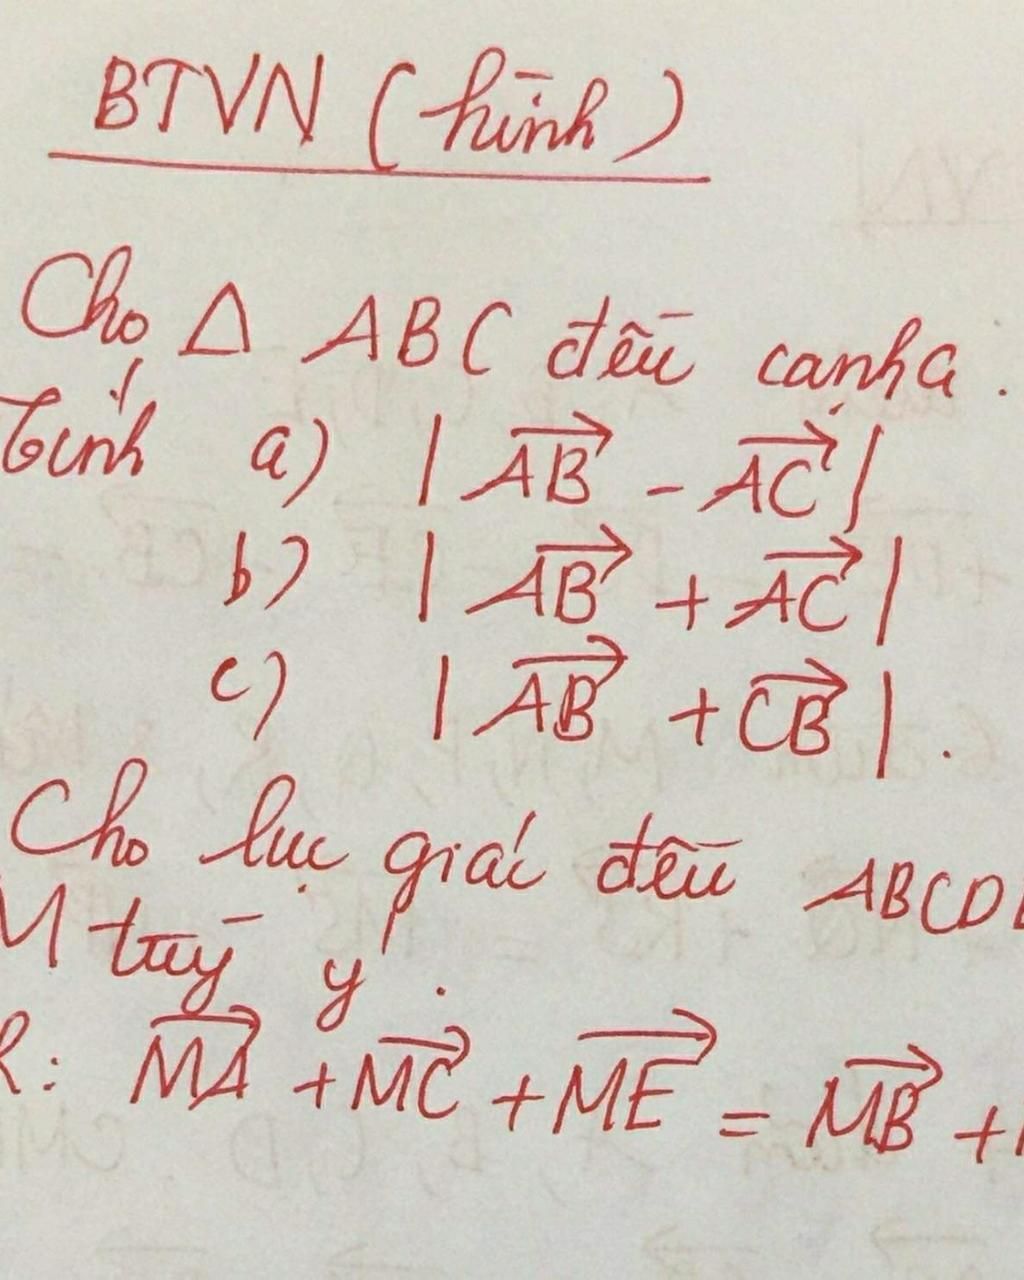 BTVN (hình)
Cho Δ ABC đều cạnh a.
Tính a) |AB⃗ - AC⃗|
b) |AB⃗ + AC⃗|
c) |AB⃗ + CB⃗|.
Cho lục giác đều ABCD
M tuỳ ý.
R: MA⃗ + MC⃗ + ME⃗ = MB⃗ +